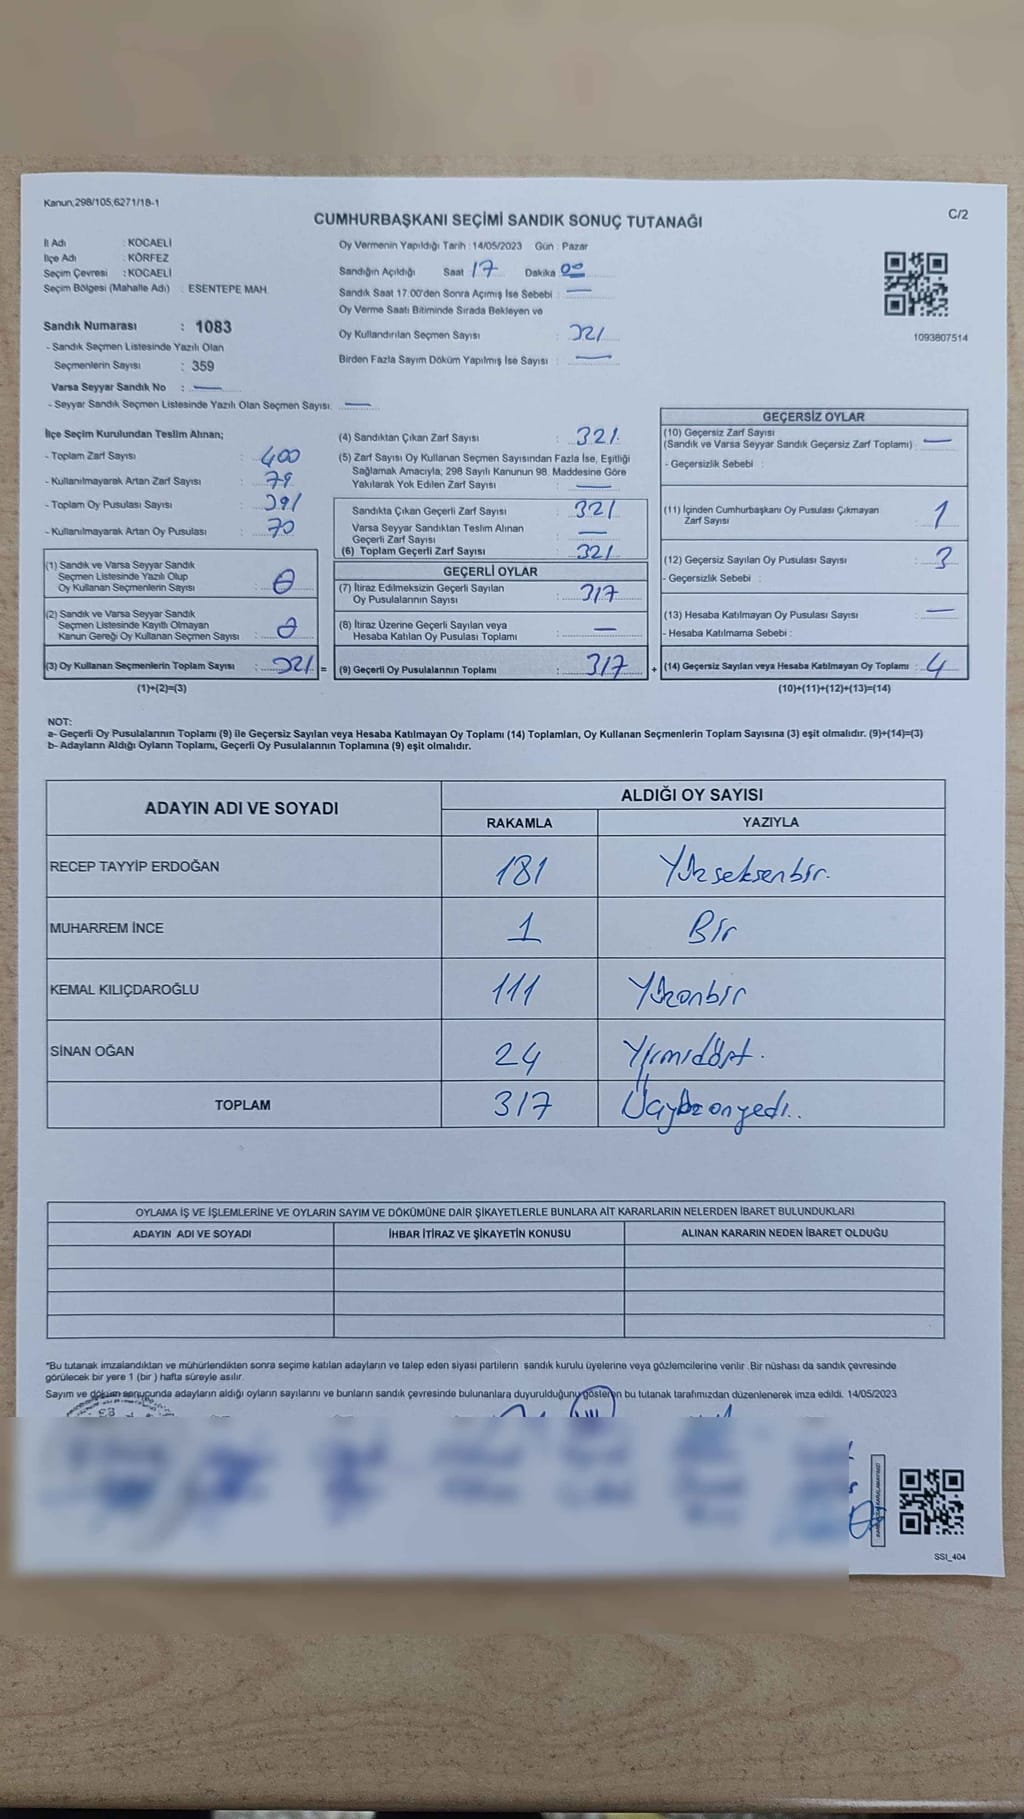 Kanun,298/105,6271/18-1
C/2
CUMHURBAŞKANI SEÇİMİ SANDIK SONUÇ TUTANAĞI
İl Adı : KOCAELİ
İlçe Adı : KÖRFEZ
Seçim Çevresi : KOCAELİ
Seçim Bölgesi (Mahalle Adı) : ESENTEPE MAH.
Sandık Numarası : 1083
- Sandık Seçmen Listesinde Yazılı Olan
Seçmenlerin Sayısı : 359
Varsa Seyyar Sandık No : —
- Seyyar Sandık Seçmen Listesinde Yazılı Olan Seçmen Sayısı: —
Oy Vermenin Yapıldığı Tarih : 14/05/2023 Gün : Pazar
Sandığın Açıldığı Saat 17 Dakika 00
Sandık Saat 17.00'den Sonra Açımış İse Sebebi : —
Oy Verme Saati Bitiminde Sırada Bekleyen ve
Oy Kullandırılan Seçmen Sayısı : 321
Birden Fazla Sayım Döküm Yapılmış İse Sayısı : —
1093807514
İlçe Seçim Kurulundan Teslim Alınan;
- Toplam Zarf Sayısı : 400
- Kullanılmayarak Artan Zarf Sayısı : 79
- Toplam Oy Pusulası Sayısı : 391
- Kullanılmayarak Artan Oy Pusulası : 70
(1) Sandık ve Varsa Seyyar Sandık
Seçmen Listesinde Yazılı Olup
Oy Kullanan Seçmenlerin Sayısı :
(2) Sandık ve Varsa Seyyar Sandık
Seçmen Listesinde Kayıtlı Olmayan
Kanun Gereği Oy Kullanan Seçmen Sayısı :
(3) Oy Kullanan Seçmenlerin Toplam Sayısı : 321 =
(1)+(2)=(3)
(4) Sandıktan Çıkan Zarf Sayısı : 321
(5) Zarf Sayısı Oy Kullanan Seçmen Sayısından Fazla İse, Eşitliği
Sağlamak Amacıyla; 298 Sayılı Kanunun 98. Maddesine Göre
Yakılarak Yok Edilen Zarf Sayısı : —
Sandıkta Çıkan Geçerli Zarf Sayısı : 321
Varsa Seyyar Sandıktan Teslim Alınan
Geçerli Zarf Sayısı : —
(6) Toplam Geçerli Zarf Sayısı : 321
GEÇERLİ OYLAR
(7) İtiraz Edilmeksizin Geçerli Sayılan
Oy Pusulalarının Sayısı : 317
(8) İtiraz Üzerine Geçerli Sayılan veya
Hesaba Katılan Oy Pusulası Toplamı : —
(9) Geçerli Oy Pusulalarının Toplamı : 317 +
GEÇERSİZ OYLAR
(10) Geçersiz Zarf Sayısı
(Sandık ve Varsa Seyyar Sandık Geçersiz Zarf Toplamı) : —
- Geçersizlik Sebebi :
(11) İçinden Cumhurbaşkanı Oy Pusulası Çıkmayan
Zarf Sayısı : 1
(12) Geçersiz Sayılan Oy Pusulası Sayısı : 3
- Geçersizlik Sebebi :
(13) Hesaba Katılmayan Oy Pusulası Sayısı : —
- Hesaba Katılmama Sebebi :
(14) Geçersiz Sayılan veya Hesaba Katılmayan Oy Toplamı : 4
(10)+(11)+(12)+(13)=(14)
NOT:
a- Geçerli Oy Pusulalarının Toplamı (9) ile Geçersiz Sayılan veya Hesaba Katılmayan Oy Toplamı (14) Toplamları, Oy Kullanan Seçmenlerin Toplam Sayısına (3) eşit olmalıdır. (9)+(14)=(3)
b- Adayların Aldığı Oyların Toplamı, Geçerli Oy Pusulalarının Toplamına (9) eşit olmalıdır.
ADAYIN ADI VE SOYADI
ALDIĞI OY SAYISI
RAKAMLA YAZIYLA
RECEP TAYYİP ERDOĞAN 181 Yüzseksenbir.
MUHARREM İNCE 1 Bir
KEMAL KILIÇDAROĞLU 111 Yüzonbir
SİNAN OĞAN 24 Yirmidört.
TOPLAM 317 Üçyüzonyedi..
OYLAMA İŞ VE İŞLEMLERİNE VE OYLARIN SAYIM VE DÖKÜMÜNE DAİR ŞİKAYETLERLE BUNLARA AİT KARARLARIN NELERDEN İBARET BULUNDUKLARI
ADAYIN ADI VE SOYADI İHBAR İTİRAZ VE ŞİKAYETİN KONUSU ALINAN KARARIN NEDEN İBARET OLDUĞU
*Bu tutanak imzalandıktan ve mühürlendikten sonra seçime katılan adayların ve talep eden siyasi partilerin sandık kurulu üyelerine veya gözlemcilerine verilir. Bir nüshası da sandık çevresinde
görülecek bir yere 1 (bir ) hafta süreyle asılır.
Sayım ve döküm sonucunda adayların aldığı oyların sayılarını ve bunların sandık çevresinde bulunanlara duyurulduğunu gösteren bu tutanak tarafımızdan düzenlenerek imza edildi. 14/05/2023
SSI_404